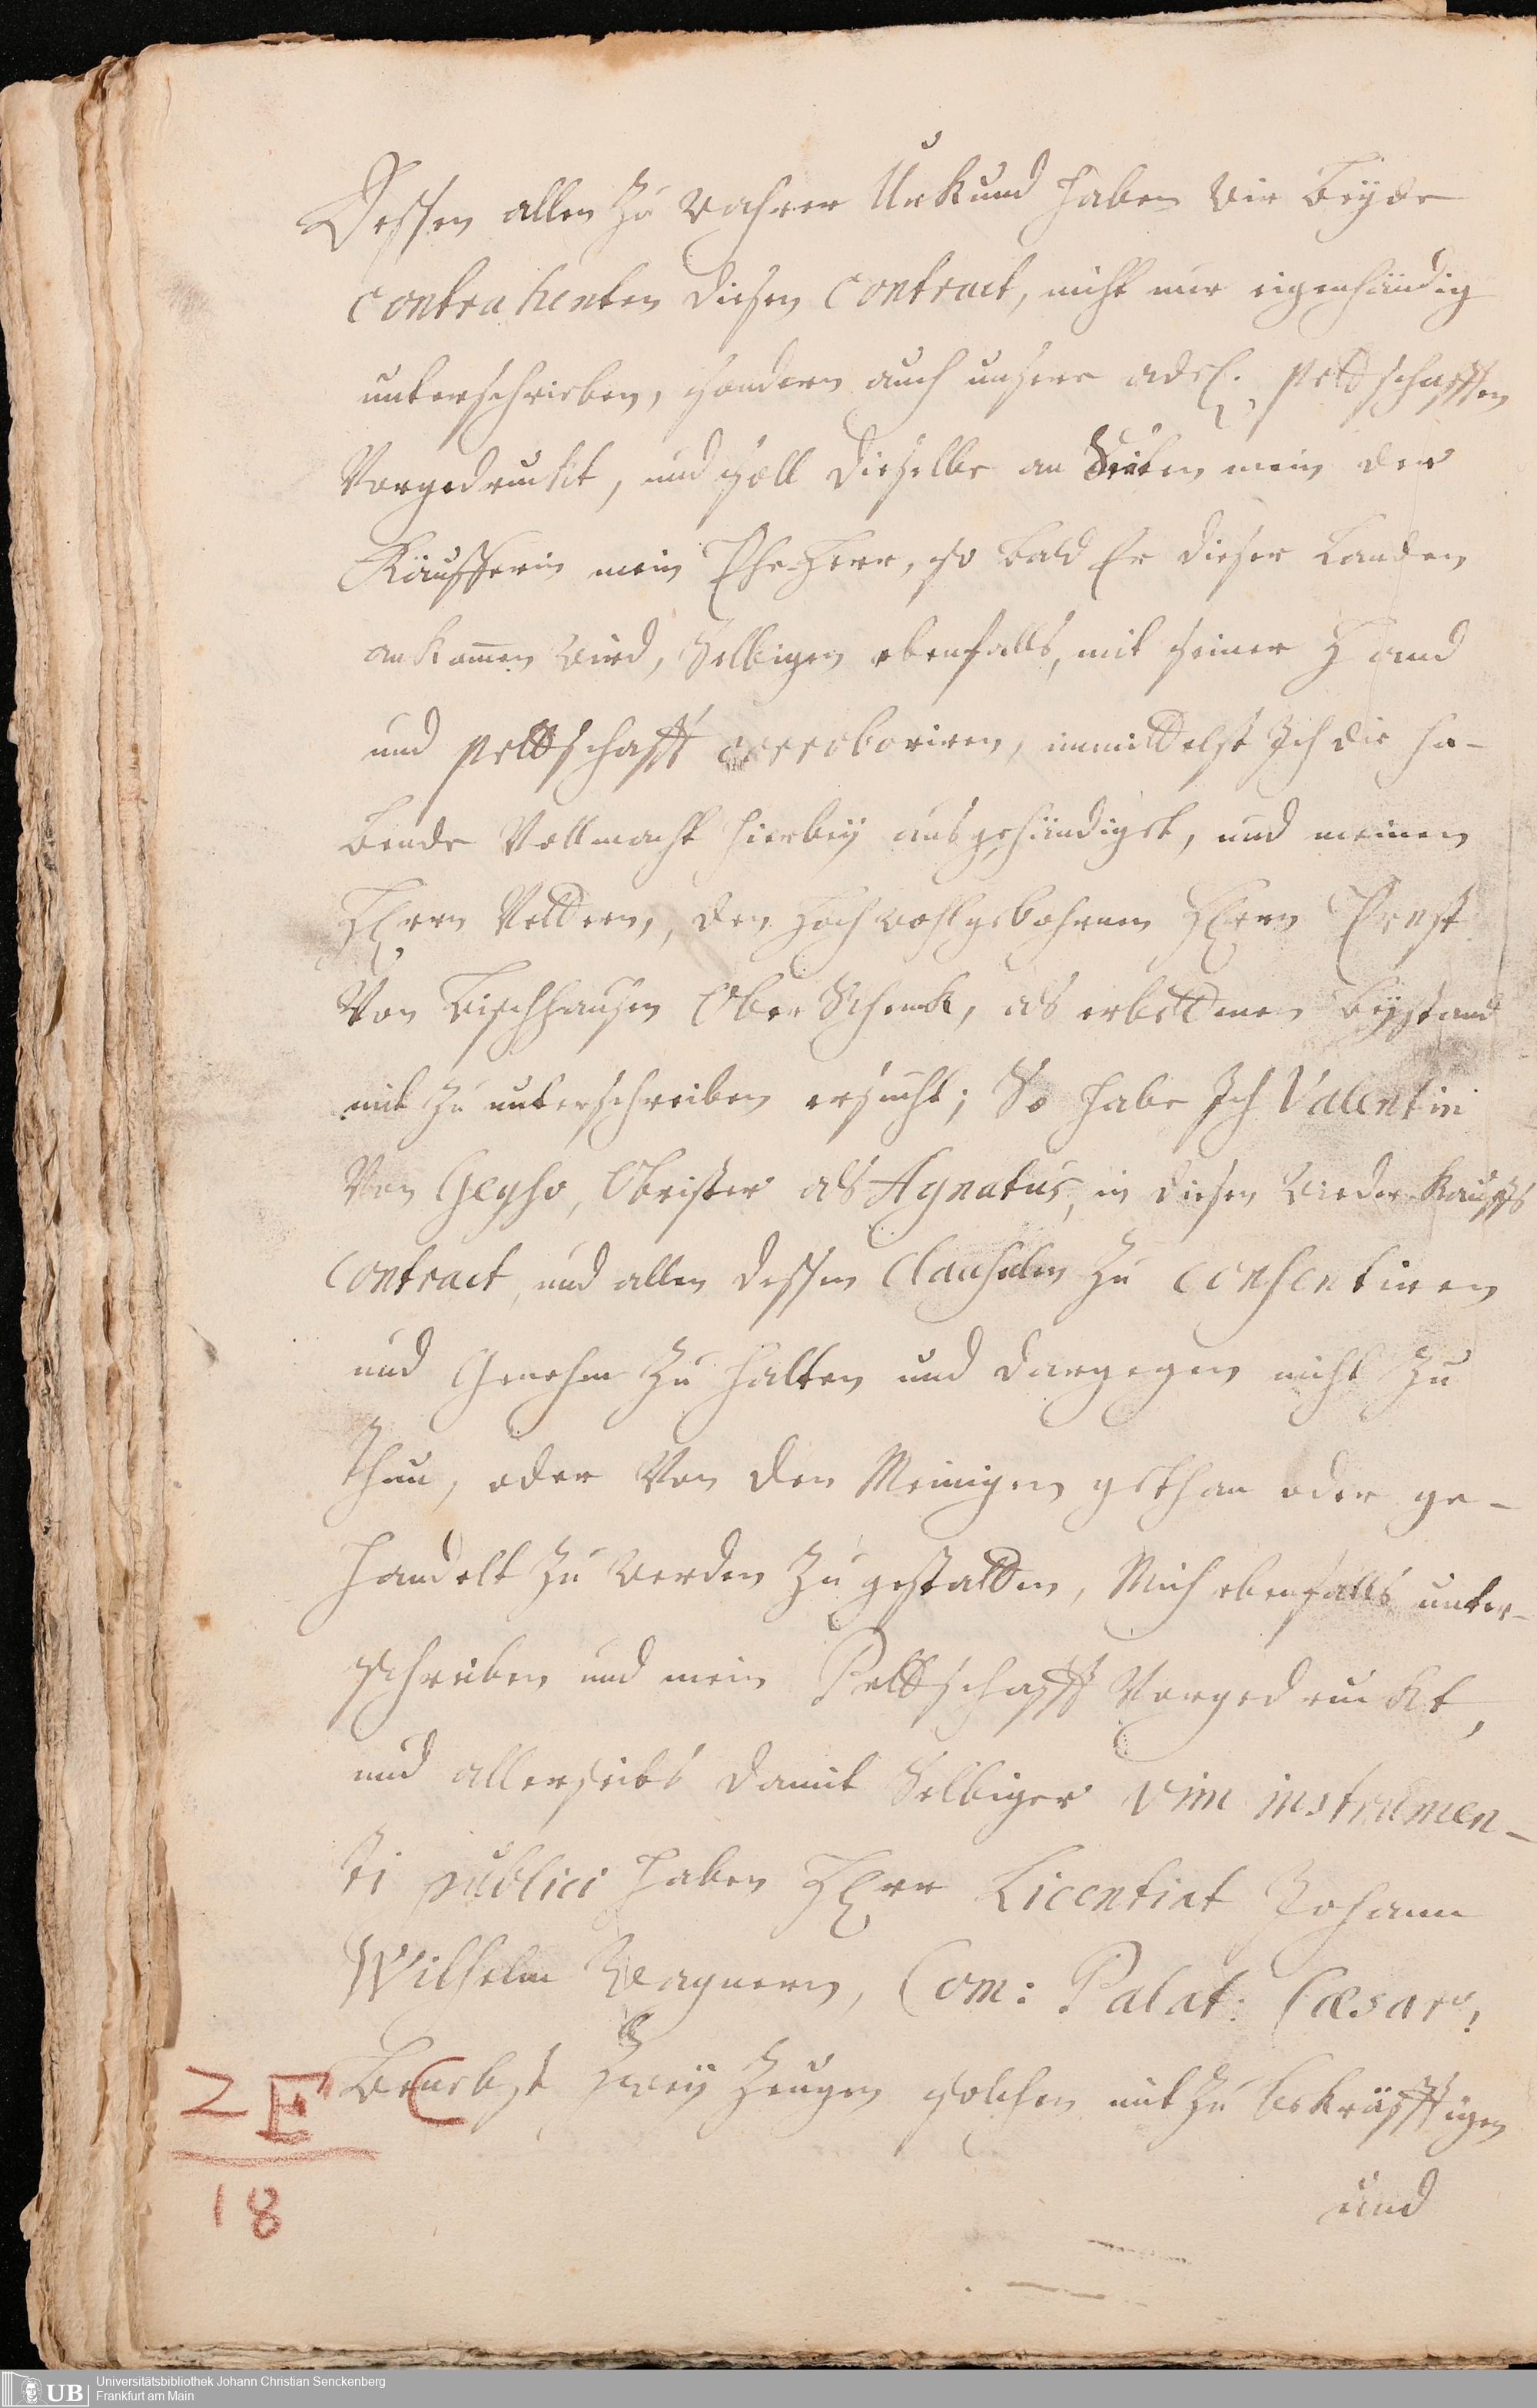 Dessen allen zu wahrer Urkund haben wir beyde
contrahenten diesen contract, nicht nur eigenhändig
unterschrieben, sondern auch unsere adel. pettschafften
Vorgedruckt, und soll dieselbe an Seiten mein der
Käufferin mein Ehe-Herr, so bald Er dieser Landen
ankom̄en wird, Selbigen ebenfalls, mit seiner Hand
und pettschafft corroboriren, immittelst Ich die ha-
bende Vollmacht hierbey ausgehändiget, und meinen
Herrn Vettern, den Hochwohlgebohrnen Herrn Ernst
Von Bischhausen Ober Schenck, als erbettenen beystand
mit zu unterschreiben ersucht; So habe Ich Valentin
Von Geyso, Obrister als Agnatus, in diesen Wieder-Kauffs
Contract, und allen dessen Clausulen zu consentiren
und Genehm zu halten und dargegen nicht zu
thun, oder Von den Meinigen gethan oder ge-
handelt zu werden zu gestatten, Mich ebenfalls unter-
schrieben und mein Pettschafft Vorgedruckt,
und allerseits damit Selbiger vim instrumen-
ti publici haben Herr Licentiat Johann
Wilhelm Wagnern, Com: Palat: Cæsar:
benebst zwey Zeugen solchen mit zu bekräfftigen
und
2 E C
18
Universitätsbibliothek Johann Christian Senckenberg
Frankfurt am Main
UB